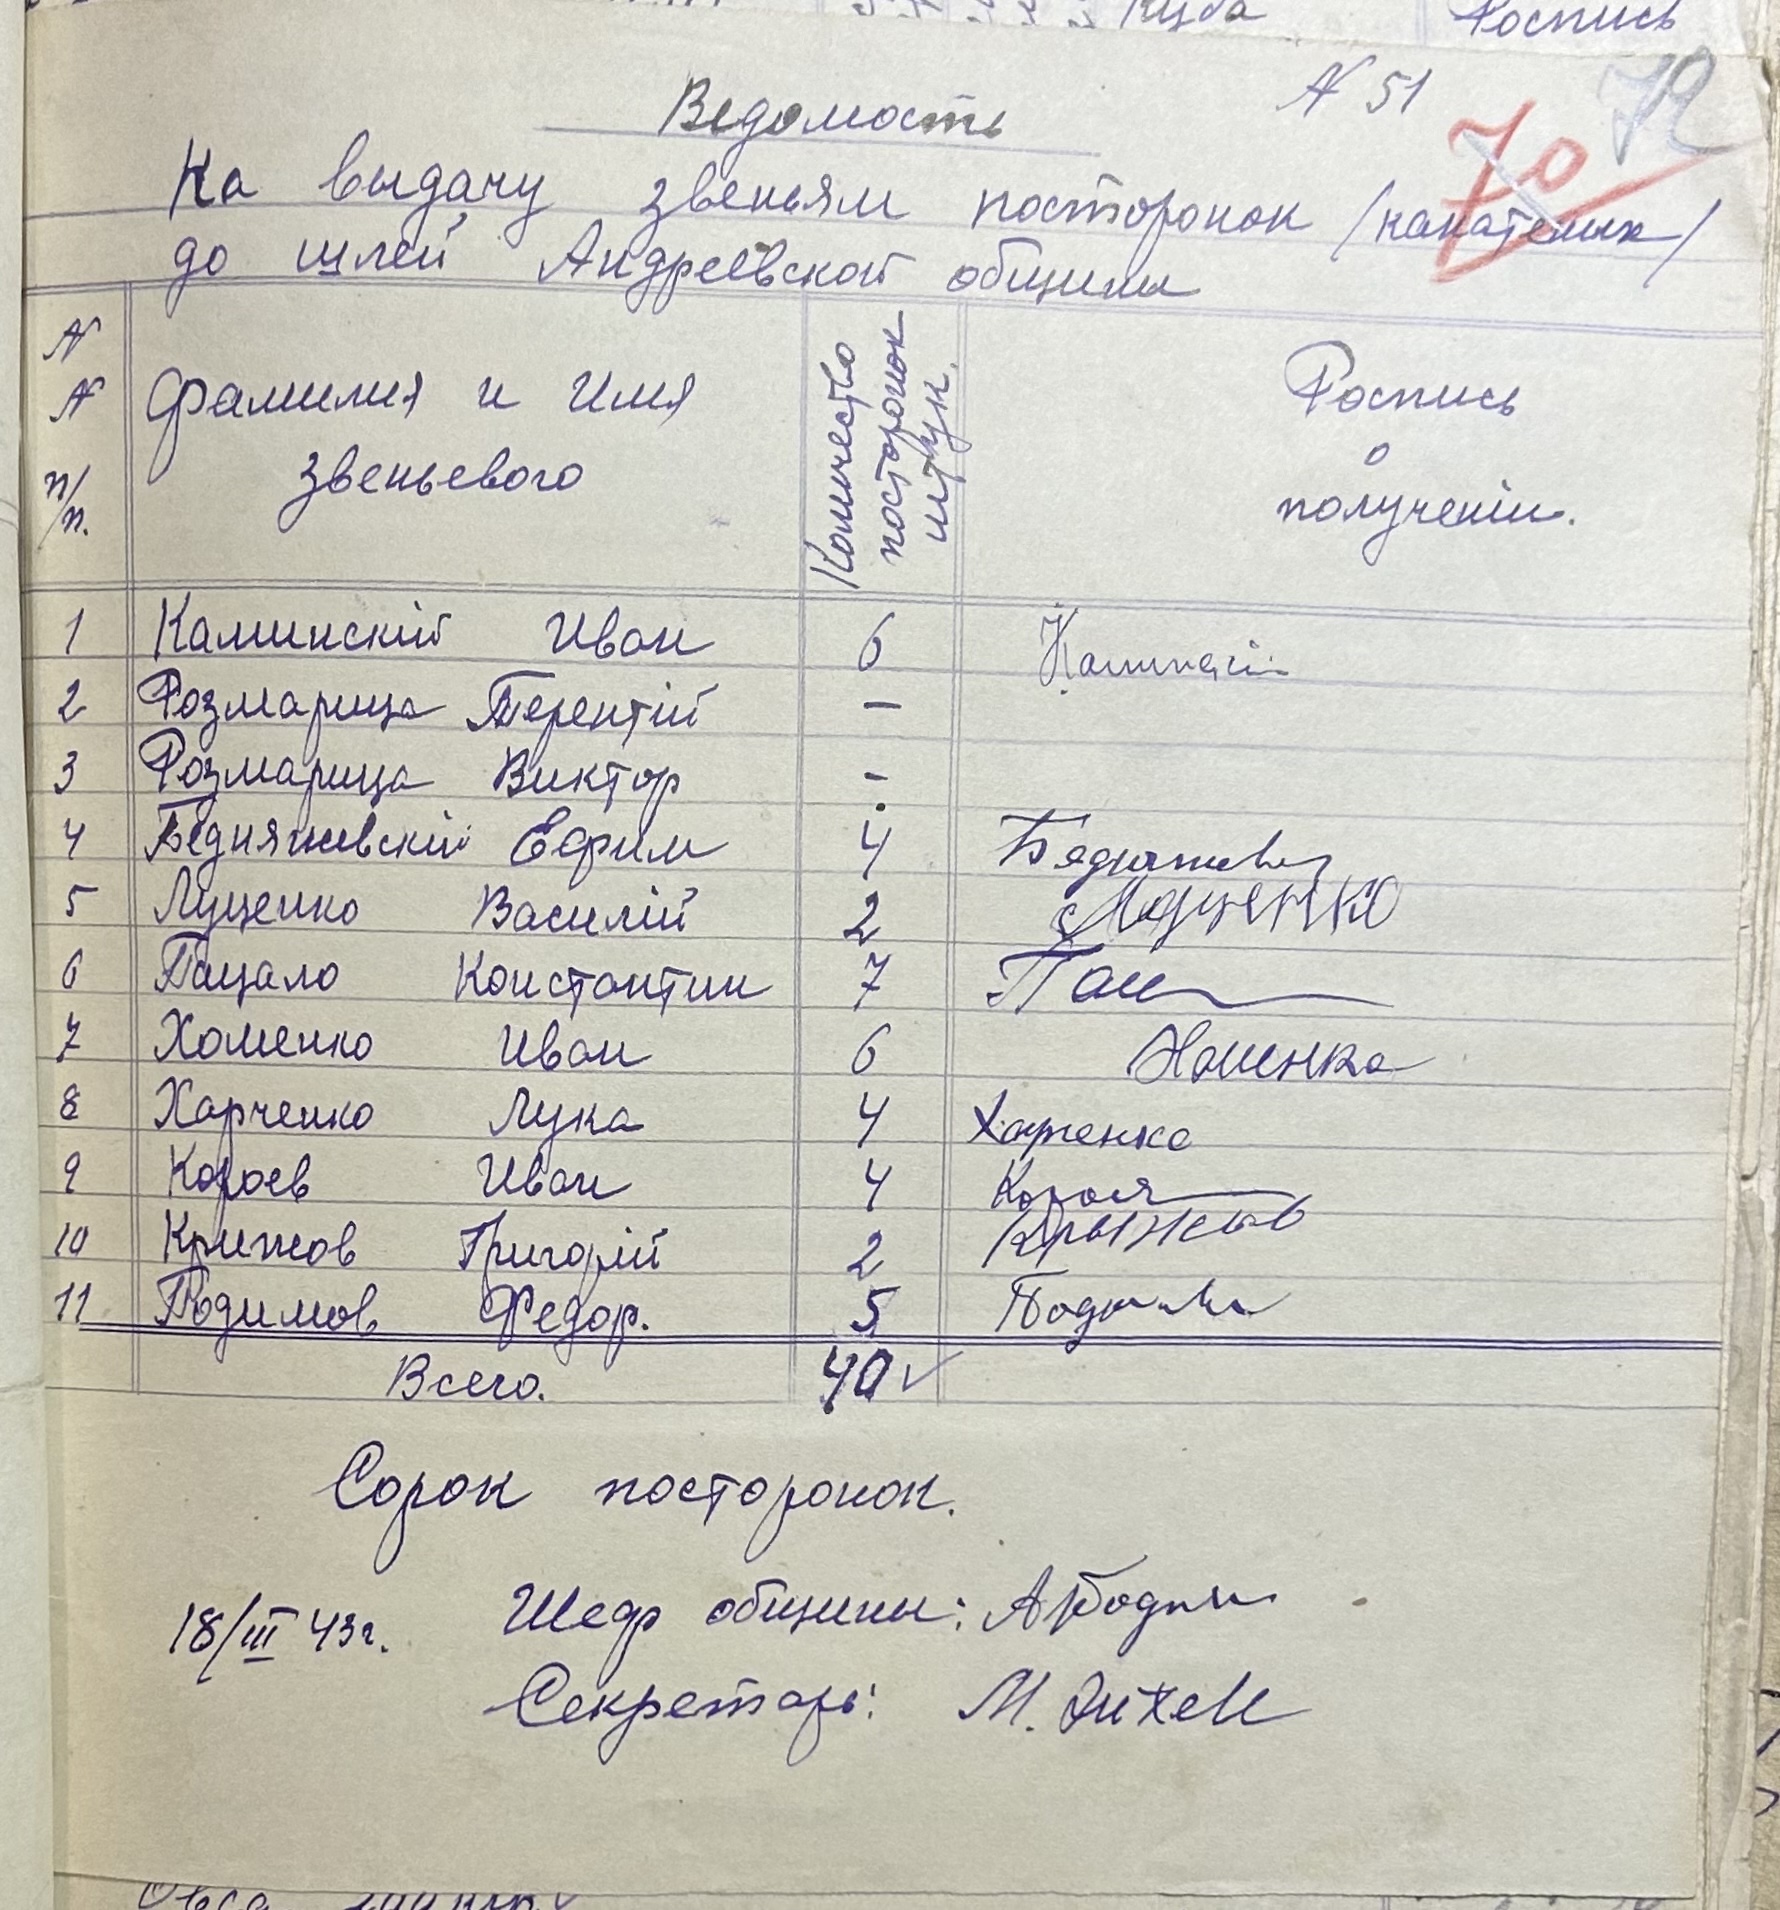 Роспись
Ведомость
№ 51
70 72
На выдачу звеньям посторонок /канатных/
до шлей Андреевской общины
№ № п/п. Фамилия и Имя звеньевого Количество посторонок штук. Роспись о получении.
1 Каминскій Иван 6
2 Розмарица Терентій –
3 Розмарица Виктор –
4 Бедняжевскій Ефрим 4
5 Луценко Василій 2 Луценко
6 Пацало Константин 7 Пац
7 Хоменко Иван 6 Хоменко
8 Харченко Лука 4 Харченко
9 Короев Иван 4
10 Крижов Григорій 2 Крыжов
11 Подимов Федор. 5
Всего. 40 ✓
Сорок посторонок.
18/III 43г. Шеф общины:
Секретарь: М.
Овса